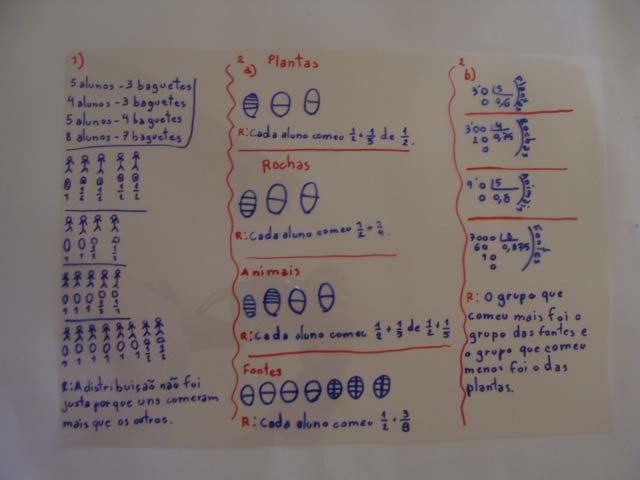 1)
5 alunos - 3 baguetes
4 alunos - 3 baguetes
5 alunos - 4 baguetes
8 alunos - 7 baguetes
R: A distribuição não foi
justa porque uns comeram
mais que os outros.
2
a) Plantas
R: Cada aluno comeu 1/2 + 1/5 de 1/2.
Rochas
R: Cada aluno comeu
Animais
R: Cada aluno comeu 1/2 + 1/5 de 1/2 + 1/5
Fontes
R: Cada aluno comeu 1/2 + 3/8
2
b)
3'0 5 Plantas
0 0,6
3'00 4 Rochas
20 0,75
0
5 Animais
0 0,8
7000 8 Fontes
60 0,875
0
R: O grupo que
comeu mais foi o
grupo das fontes e
o grupo que comeu
menos foi o das
plantas.